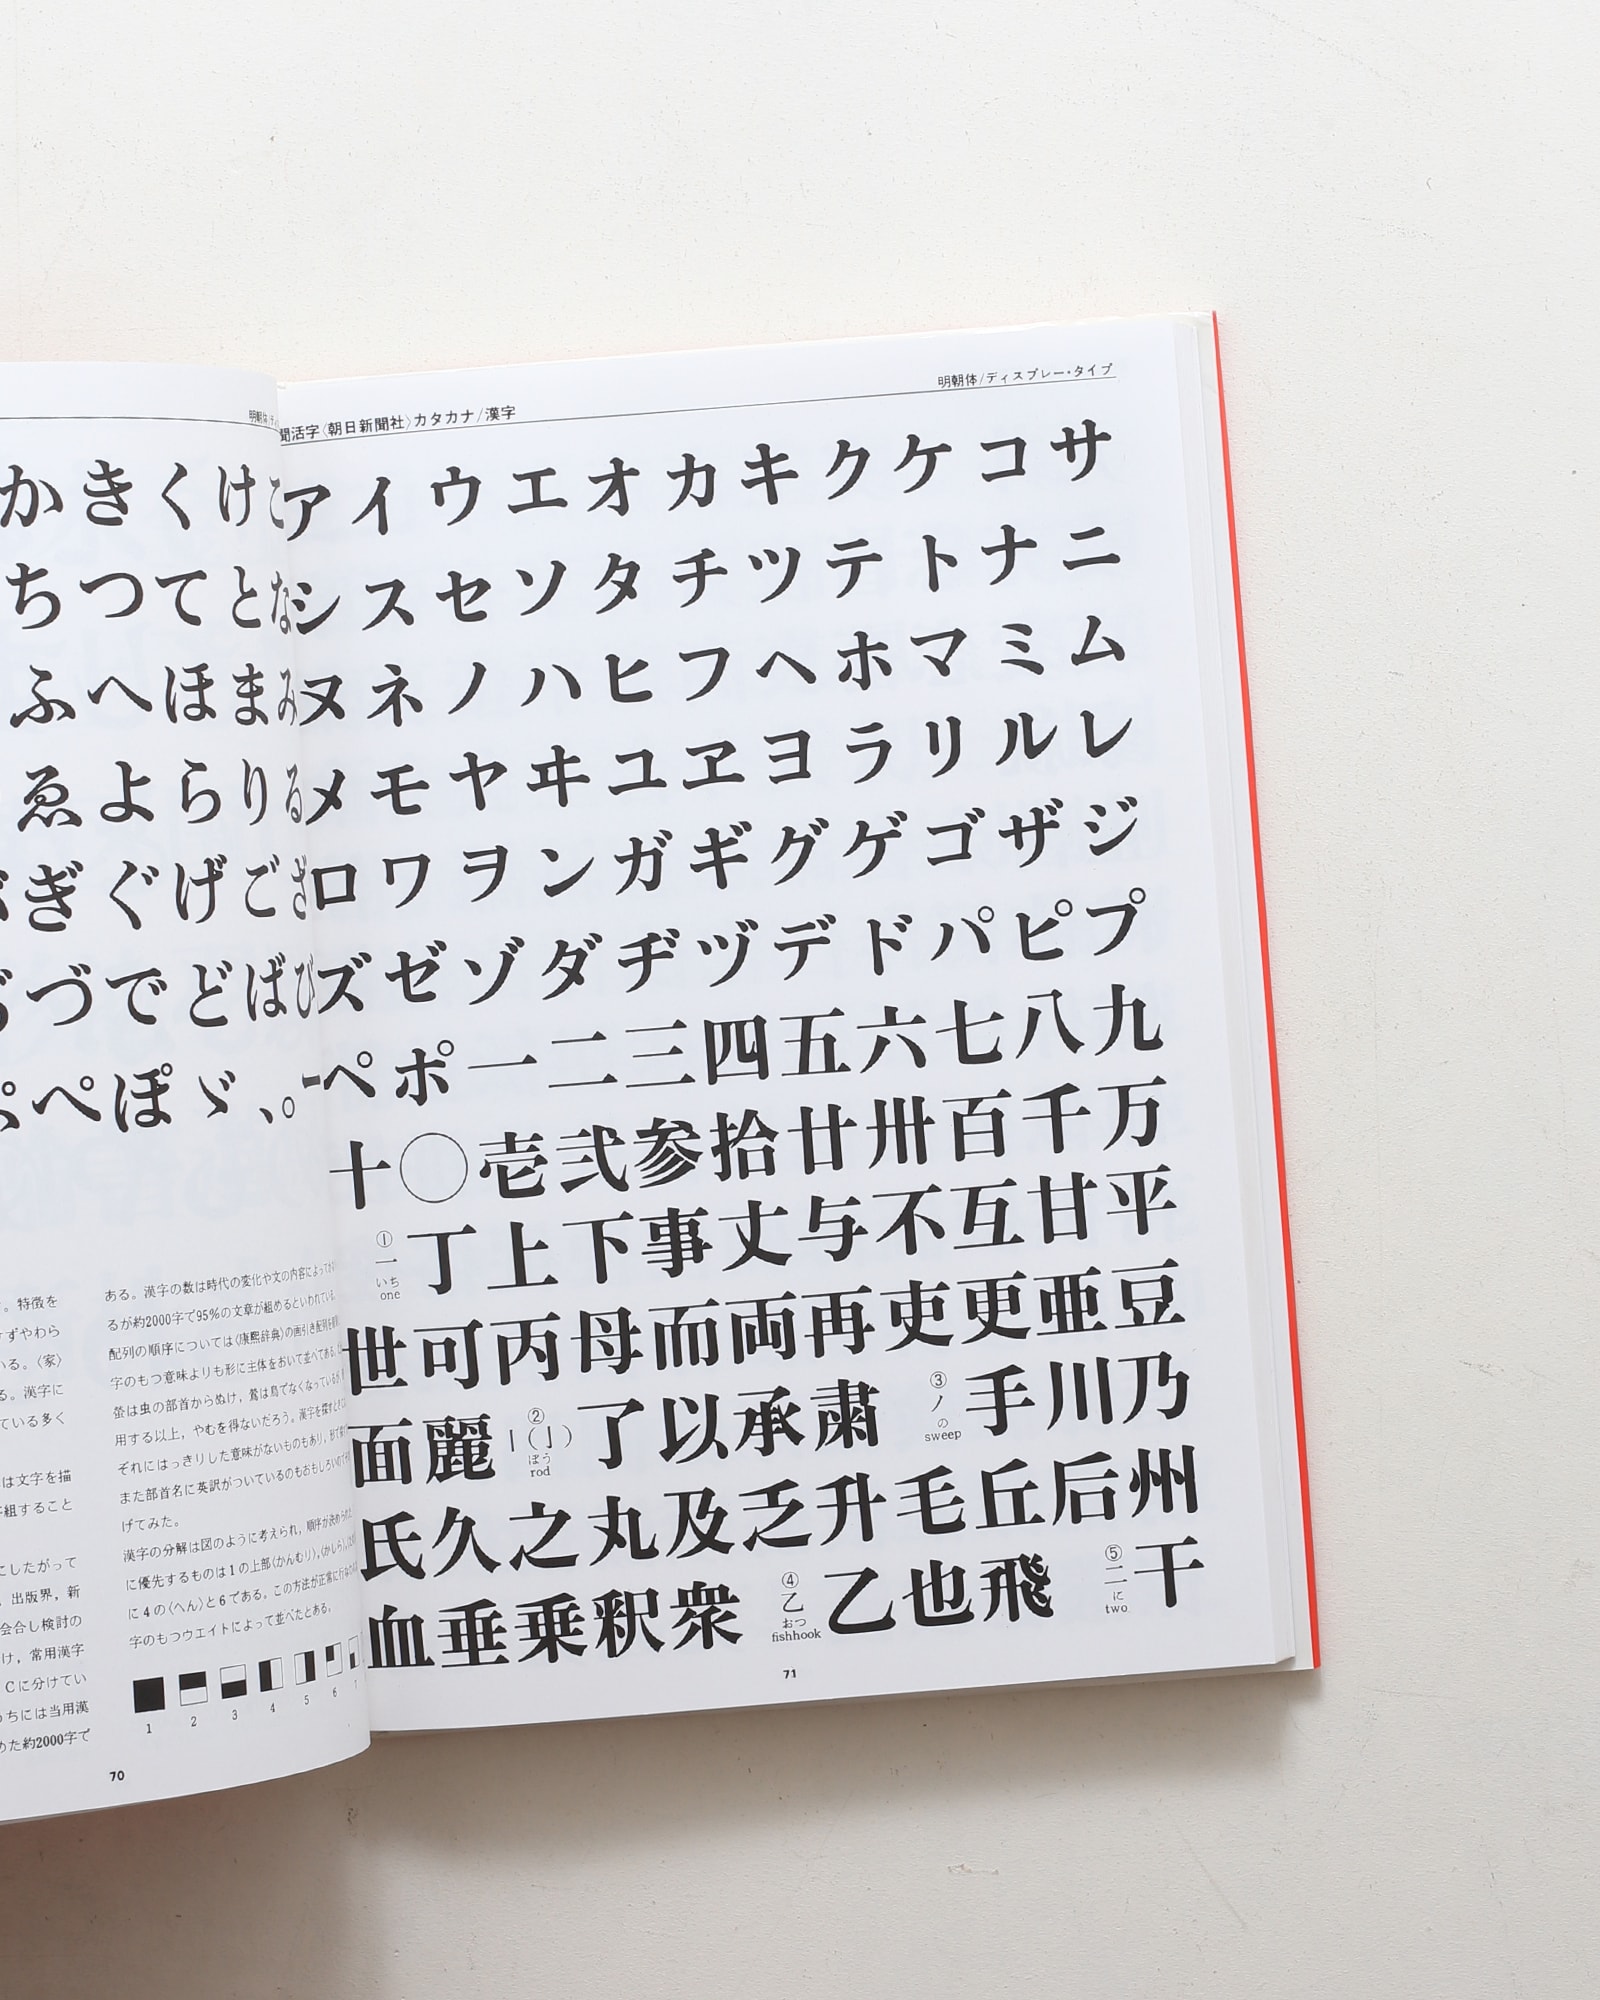 かきくけこ
ちつてとな
ふへほまみ
ゑよらりる
ぎぐげござ
づでどばび
ぺぽゞ、。
。特徴を
ずやわら
いる。〈家〉
る。漢字に
ている多く
は文字を描
組すること
にしたがって
出版界，新
会合し検討の
け，常用漢字
Cに分けてい
うちには当用漢
めた約2000字で
ある。漢字の数は時代の変化や文の内容によって
るが約2000字で95%の文章が組めるといわれている。
配列の順序については〈康熙辞典〉の画引き配列を
字のもつ意味よりも形に主体をおいて並べてある。
蛍は虫の部首からぬけ，鴬は鳥でなくなっているが，
用する以上，やむを得ないだろう。漢字を探すときに
それにはっきりした意味がないものもあり，
また部首名に英訳がついているのもおもしろいので
げてみた。
漢字の分解は図のように考えられ，順序が決められた
に優先するものは1の上部〈かんむり〉，〈かしら〉，
に4の〈へん〉と6である。この方法が正常に行な
字のもつウエイトによって並べたとある。
1 2 3 4 5 6
70
聞活字〈朝日新聞社〉カタカナ/漢字
明朝体/ディスプレー・タイプ
アイウエオカキクケコサ
シスセソタチツテトナニ
ヌネノハヒフヘホマミム
メモヤヰユヱヨラリルレ
ロワヲンガギグゲゴザジ
ズゼゾダヂヅデドパピプ
ペポ一二三四五六七八九
十〇壱弐参拾廿卅百千万
①一いちone丁上下事丈与不互甘平
世可丙母而両再吏更亜豆
面麗②｜(亅)ぼうrod了以承粛③ノのsweep手川乃
氏久之丸及乏升毛丘后州
血垂乗釈衆④乙おつfishhook乙也飛⑤二にtwo干
71